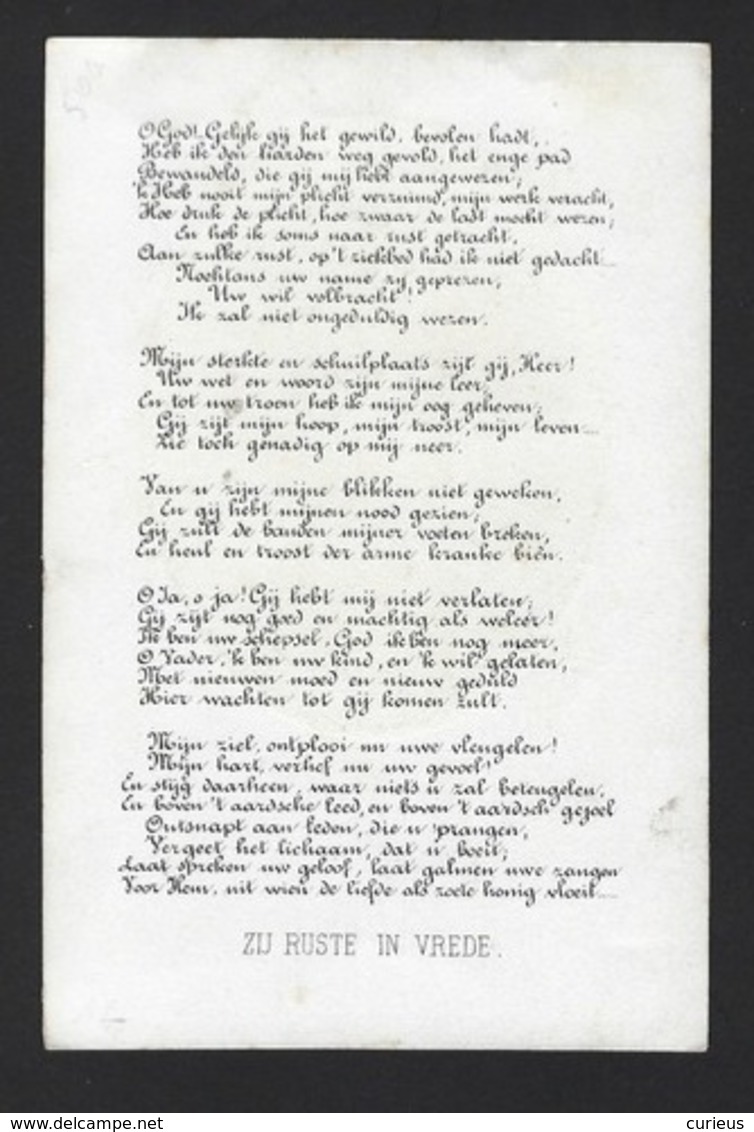 O God! Gelijk gij het gewild, bevolen hadt,
Heb ik den harden weg gevold, het enge pad
Bewandeld, die gij mij hebt aangewezen;
'k Heb nooit mijn plicht verzuimd, mijn werk veracht,
Hoe druk de plicht, hoe zwaar de last mocht wezen;
En heb ik soms naar rust getracht,
Aan zulke rust, op 't ziekbed had ik niet gedacht
Nochtans uw name zij geprezen,
Uw wil volbracht!
Ik zal niet ongeduldig wezen.
Mijn sterkte en schuilplaats zijt gij, Heer!
Uw wet en woord zijn mijne leer,
En tot uw troon heb ik mijn oog geheven;
Gij zijt mijn hoop, mijn troost, mijn leven
Zie toch genadig op mij neer.
Van u zijn mijne blikken niet geweken,
En gij hebt mijnen nood gezien;
Gij zult de banden mijner voeten breken,
En heul en troost der arme kranke biên.
O Ja, o ja! Gij hebt mij niet verlaten;
Gij zijt nog goed en machtig als weleer!
Ik ben uw schepsel, God ik ben nog meer,
O Vader, 'k ben uw kind, en 'k wil gelaten,
Met nieuwen moed en nieuw geduld
Hier wachten tot gij komen zult.
Mijn ziel, ontplooi nu uwe vleugelen!
Mijn hart, verhef nu uw gevoel!
En stijg daarheen, waar niets u zal beteugelen,
En boven 't aardsche leed, en boven 't aardsch' gejoel
Ontsnapt aan leden, die u prangen,
Vergeet het lichaam, dat u boeit;
Laat spreken uw geloof, laat galmen uwe zangen
Voor Hem, uit wien de liefde als zoete honig vloeit
ZIJ RUSTE IN VREDE.
www.delcampe.net
curieus